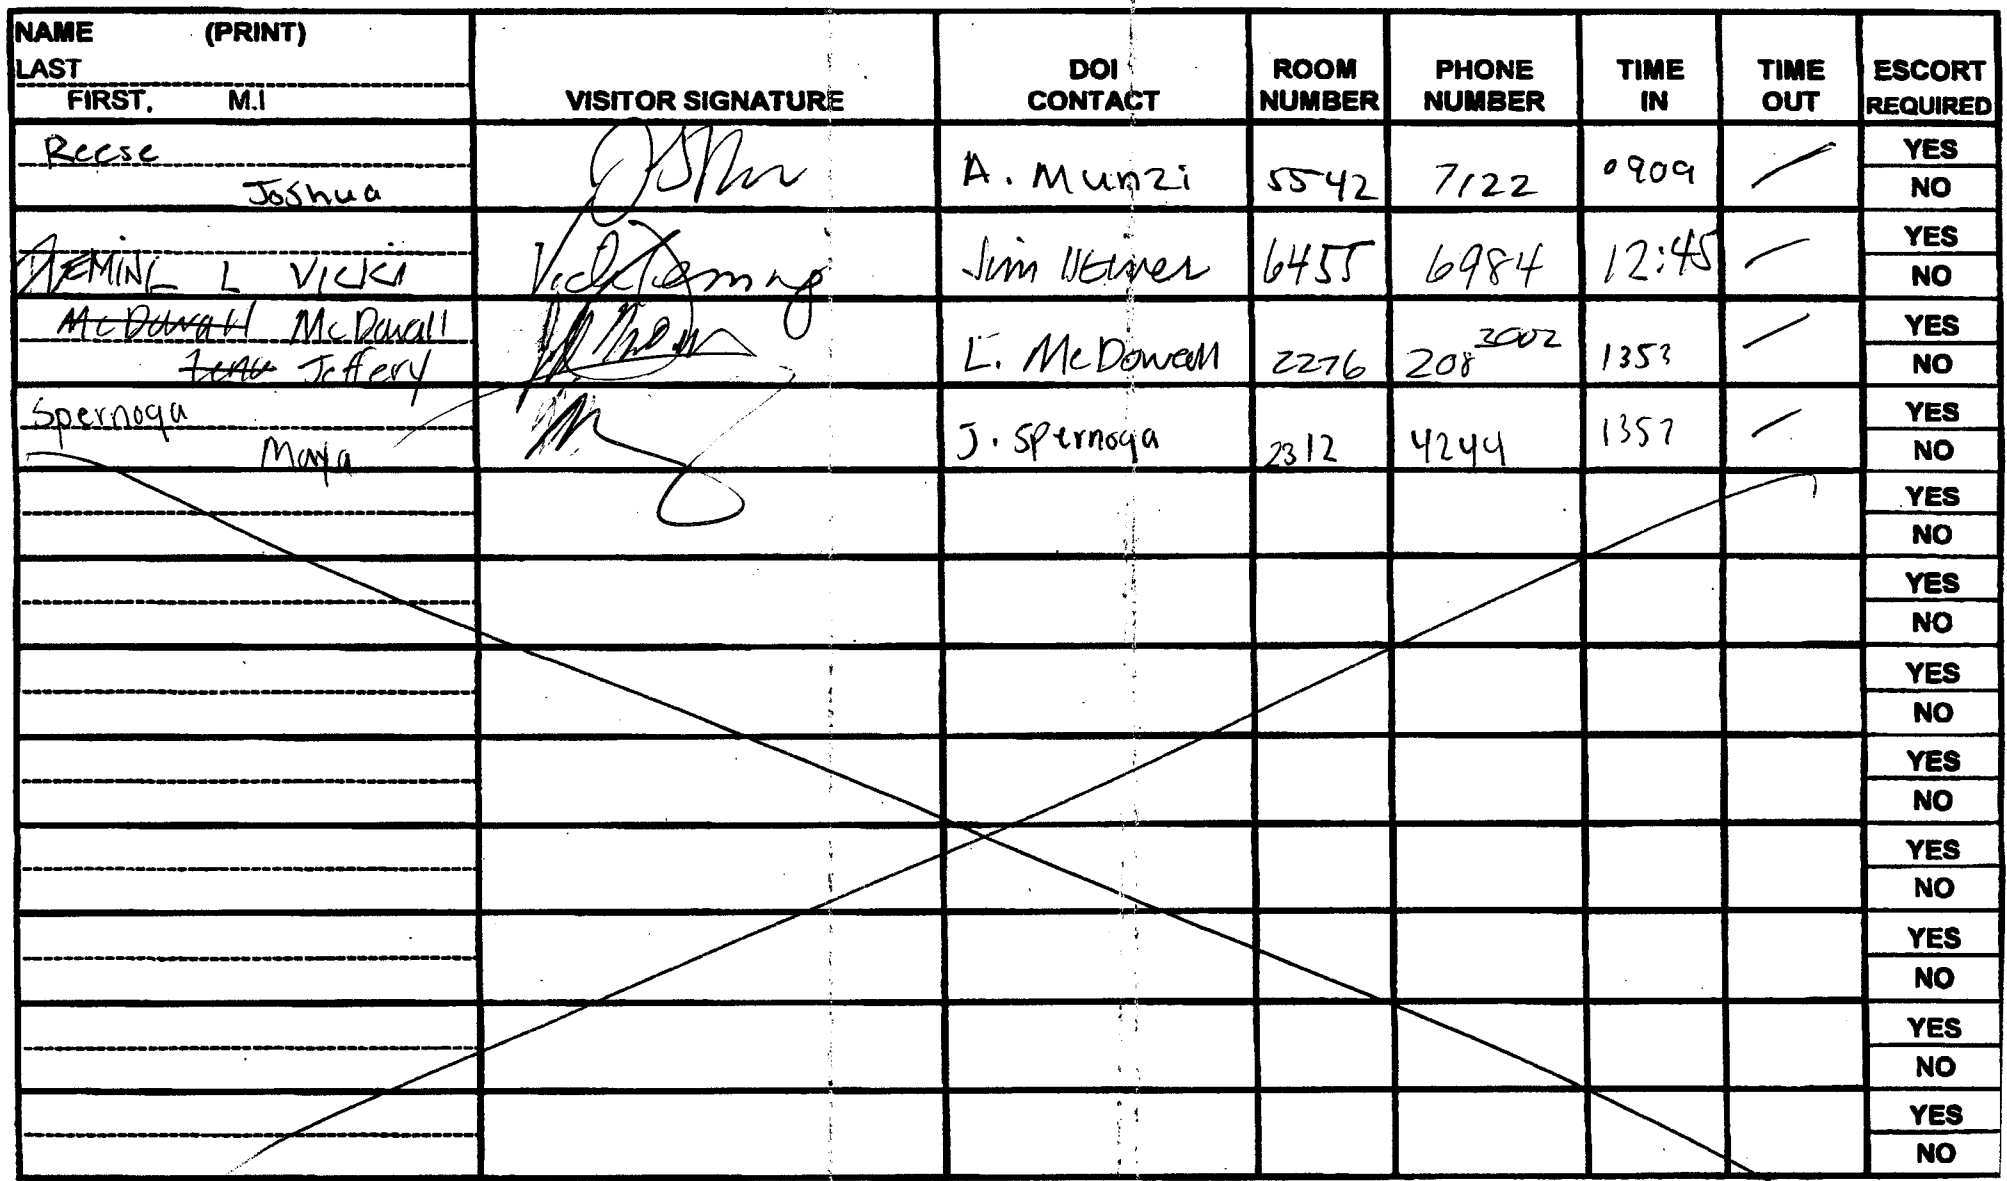 NAME (PRINT)
LAST
FIRST, M.I
VISITOR SIGNATURE
DOI CONTACT
ROOM NUMBER
PHONE NUMBER
TIME IN
TIME OUT
ESCORT REQUIRED
Reese
Joshua
A. Munzi 5542 7122 0909
YES
NO
FLEMING L VICKI Vicki Fleming Jim 6455 6984 12:45
YES
NO
McDowall McDowall
Jeffery
L. McDowall 2276 208 3002 1353
YES
NO
Spernoga
Maya
J. Spernoga 2312 4244 1357
YES
NO
YES
NO
YES
NO
YES
NO
YES
NO
YES
NO
YES
NO
YES
NO
YES
NO